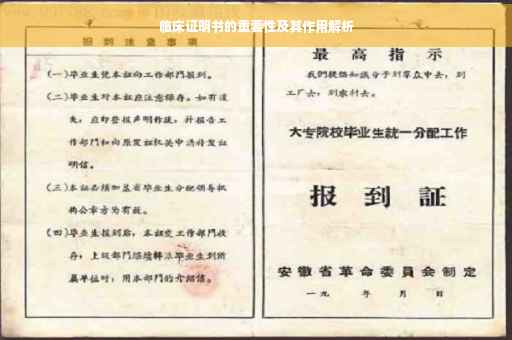 临床证明书的重要性及其作用解析
报到注意事项
(一)毕业生凭本证向工作部门报到。
(二)毕业生对本证应注意保存。如有遗
失,应即登报声明作废,并报告工
作部门和向原发证机关申请补发证
明信。
(三)本证必须加盖省毕业生分配领导机
构公章方为有效。
(四)毕业生报到后,本证交工作部门收
存,上级部门
毕业生到所
属单位时,用本部门的介绍信。
最高指示
我们提倡知识分子到群众中去,到
工厂去,到农村去。
大专院校毕业生統一分配工作
报到証
安徽省革命委員会制定
一九 年 月 日